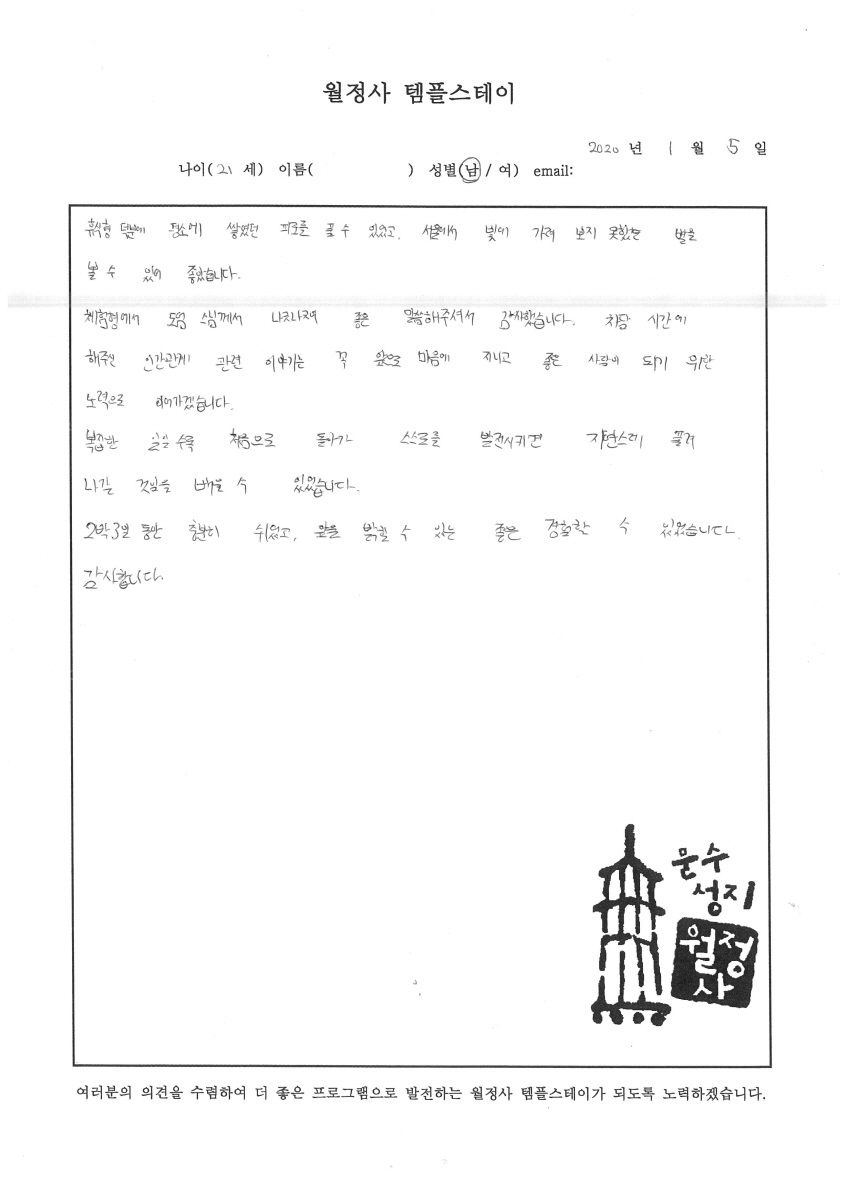 월정사 템플스테이
2020 년 1 월 5 일
나이( 21 세) 이름( ) 성별(남 / 여) email:
휴식형 덕분에 평소에 쌓였던 피로를 풀 수 있었고, 서울에서 빛이 가려 보지 못했던 별을
볼 수 있어 좋았습니다.
체험형에서 스님께서 좋은 말씀해주셔서 감사했습니다. 차담 시간에
해주신 인간관계 관련 이야기는 꼭 앞으로 마음에 지니고 좋은 사람이 되기 위한
노력으로 이어가겠습니다.
복잡한 일일 수록 처음으로 돌아가 스스로를 발전시키면 자연스레 풀려
나갈 것임을 배울 수 있었습니다.
2박3일 동안 충분히 쉬었고, 앞을 밝힐 수 있는 좋은 경험할 수 있었습니다.
감사합니다.
문수
성지
월정
사
여러분의 의견을 수렴하여 더 좋은 프로그램으로 발전하는 월정사 템플스테이가 되도록 노력하겠습니다.